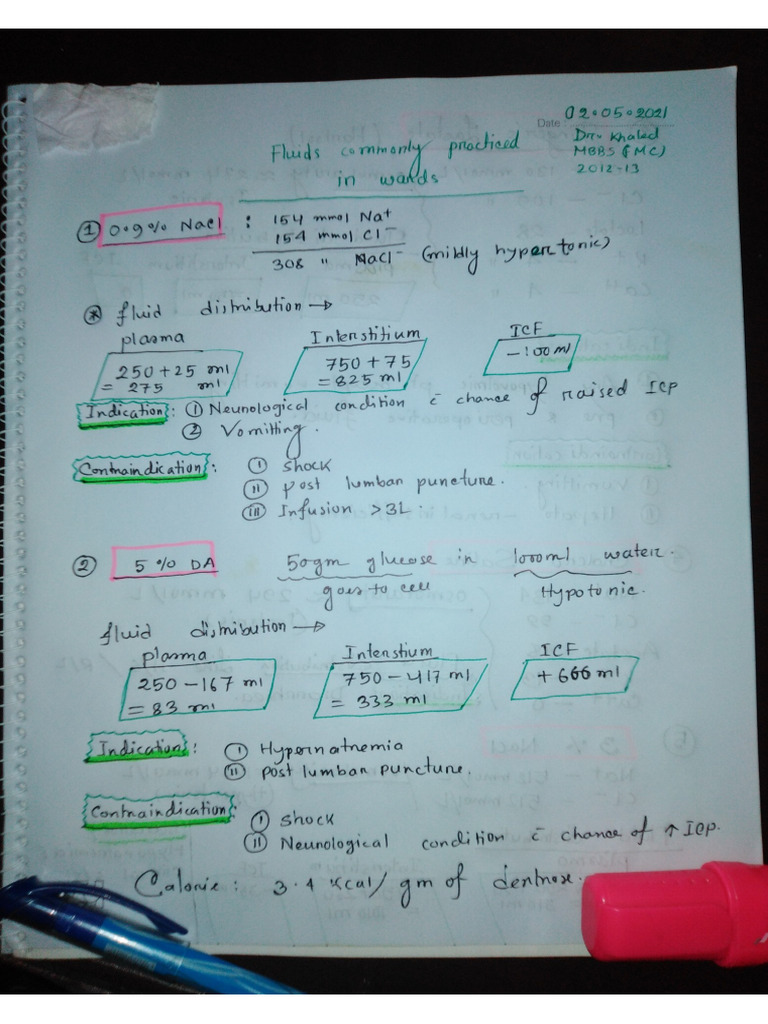 02.05.2021
Date
Dr. Khaled
MBBS (FMC)
2012-13
Fluids commonly practiced
in wards
① 0.9% NaCl : 154 mmol Na+
154 mmol Cl-
308 " NaCl- (mildly hypertonic)
* fluid distribution →
plasma Interstitium ICF
250 + 25 ml 750 + 75 -100 ml
= 275 ml = 825 ml
Indication : ① Neurological condition c̄ chance of raised ICP
② Vomitting.
Contraindication : ① shock
⑪ post lumbar puncture.
⑪⑪ Infusion >3L
② 5% DA 50gm glucose in 1000ml water
goes to cell Hypotonic.
fluid distribution →
plasma Interstium ICF
250 - 167 ml 750 - 417 ml + 666 ml
= 83 ml = 333 ml
Indication : ① Hypernatremia
⑪ post lumbar puncture.
Contraindication : ① shock
⑪ Neurological condition c̄ chance of ↑ ICP.
Calorie : 3.4 kcal/gm of dextrose.